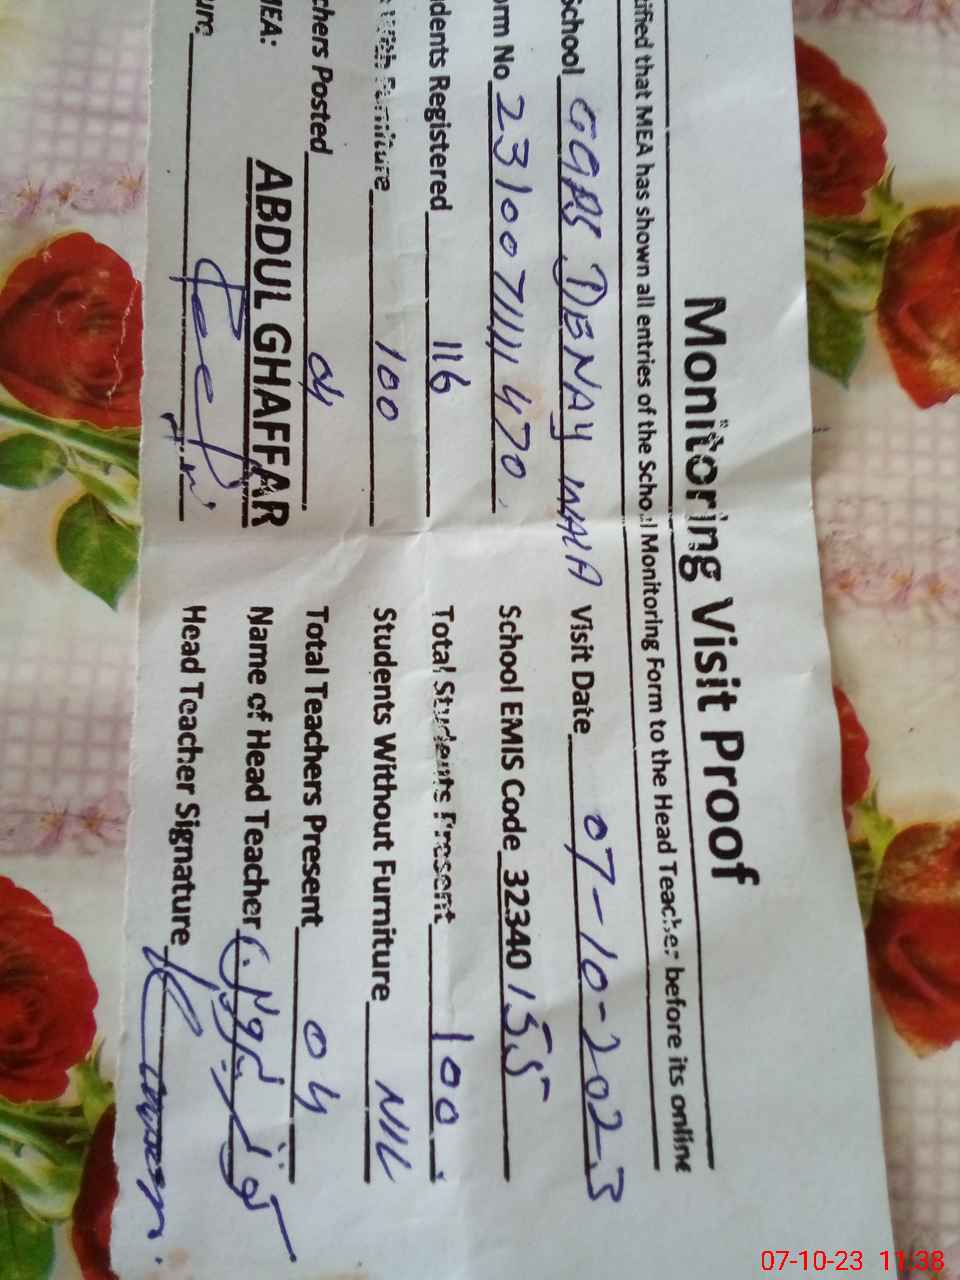 Monitoring Visit Proof
ified that MEA has shown all entries of the School Monitoring Form to the Head Teacher before its online
School GGPS DENAY WALA Visit Date 07-10-2023
orm No 23100711111470 School EMIS Code 32340155
dents Registered 116 Total Students Present 100
With Furniture 100 Students Without Furniture NIL
chers Posted 04 Total Teachers Present 04
MEA: ABDUL GHAFFAR Name of Head Teacher
ure Head Teacher Signature
07-10-23 11:38